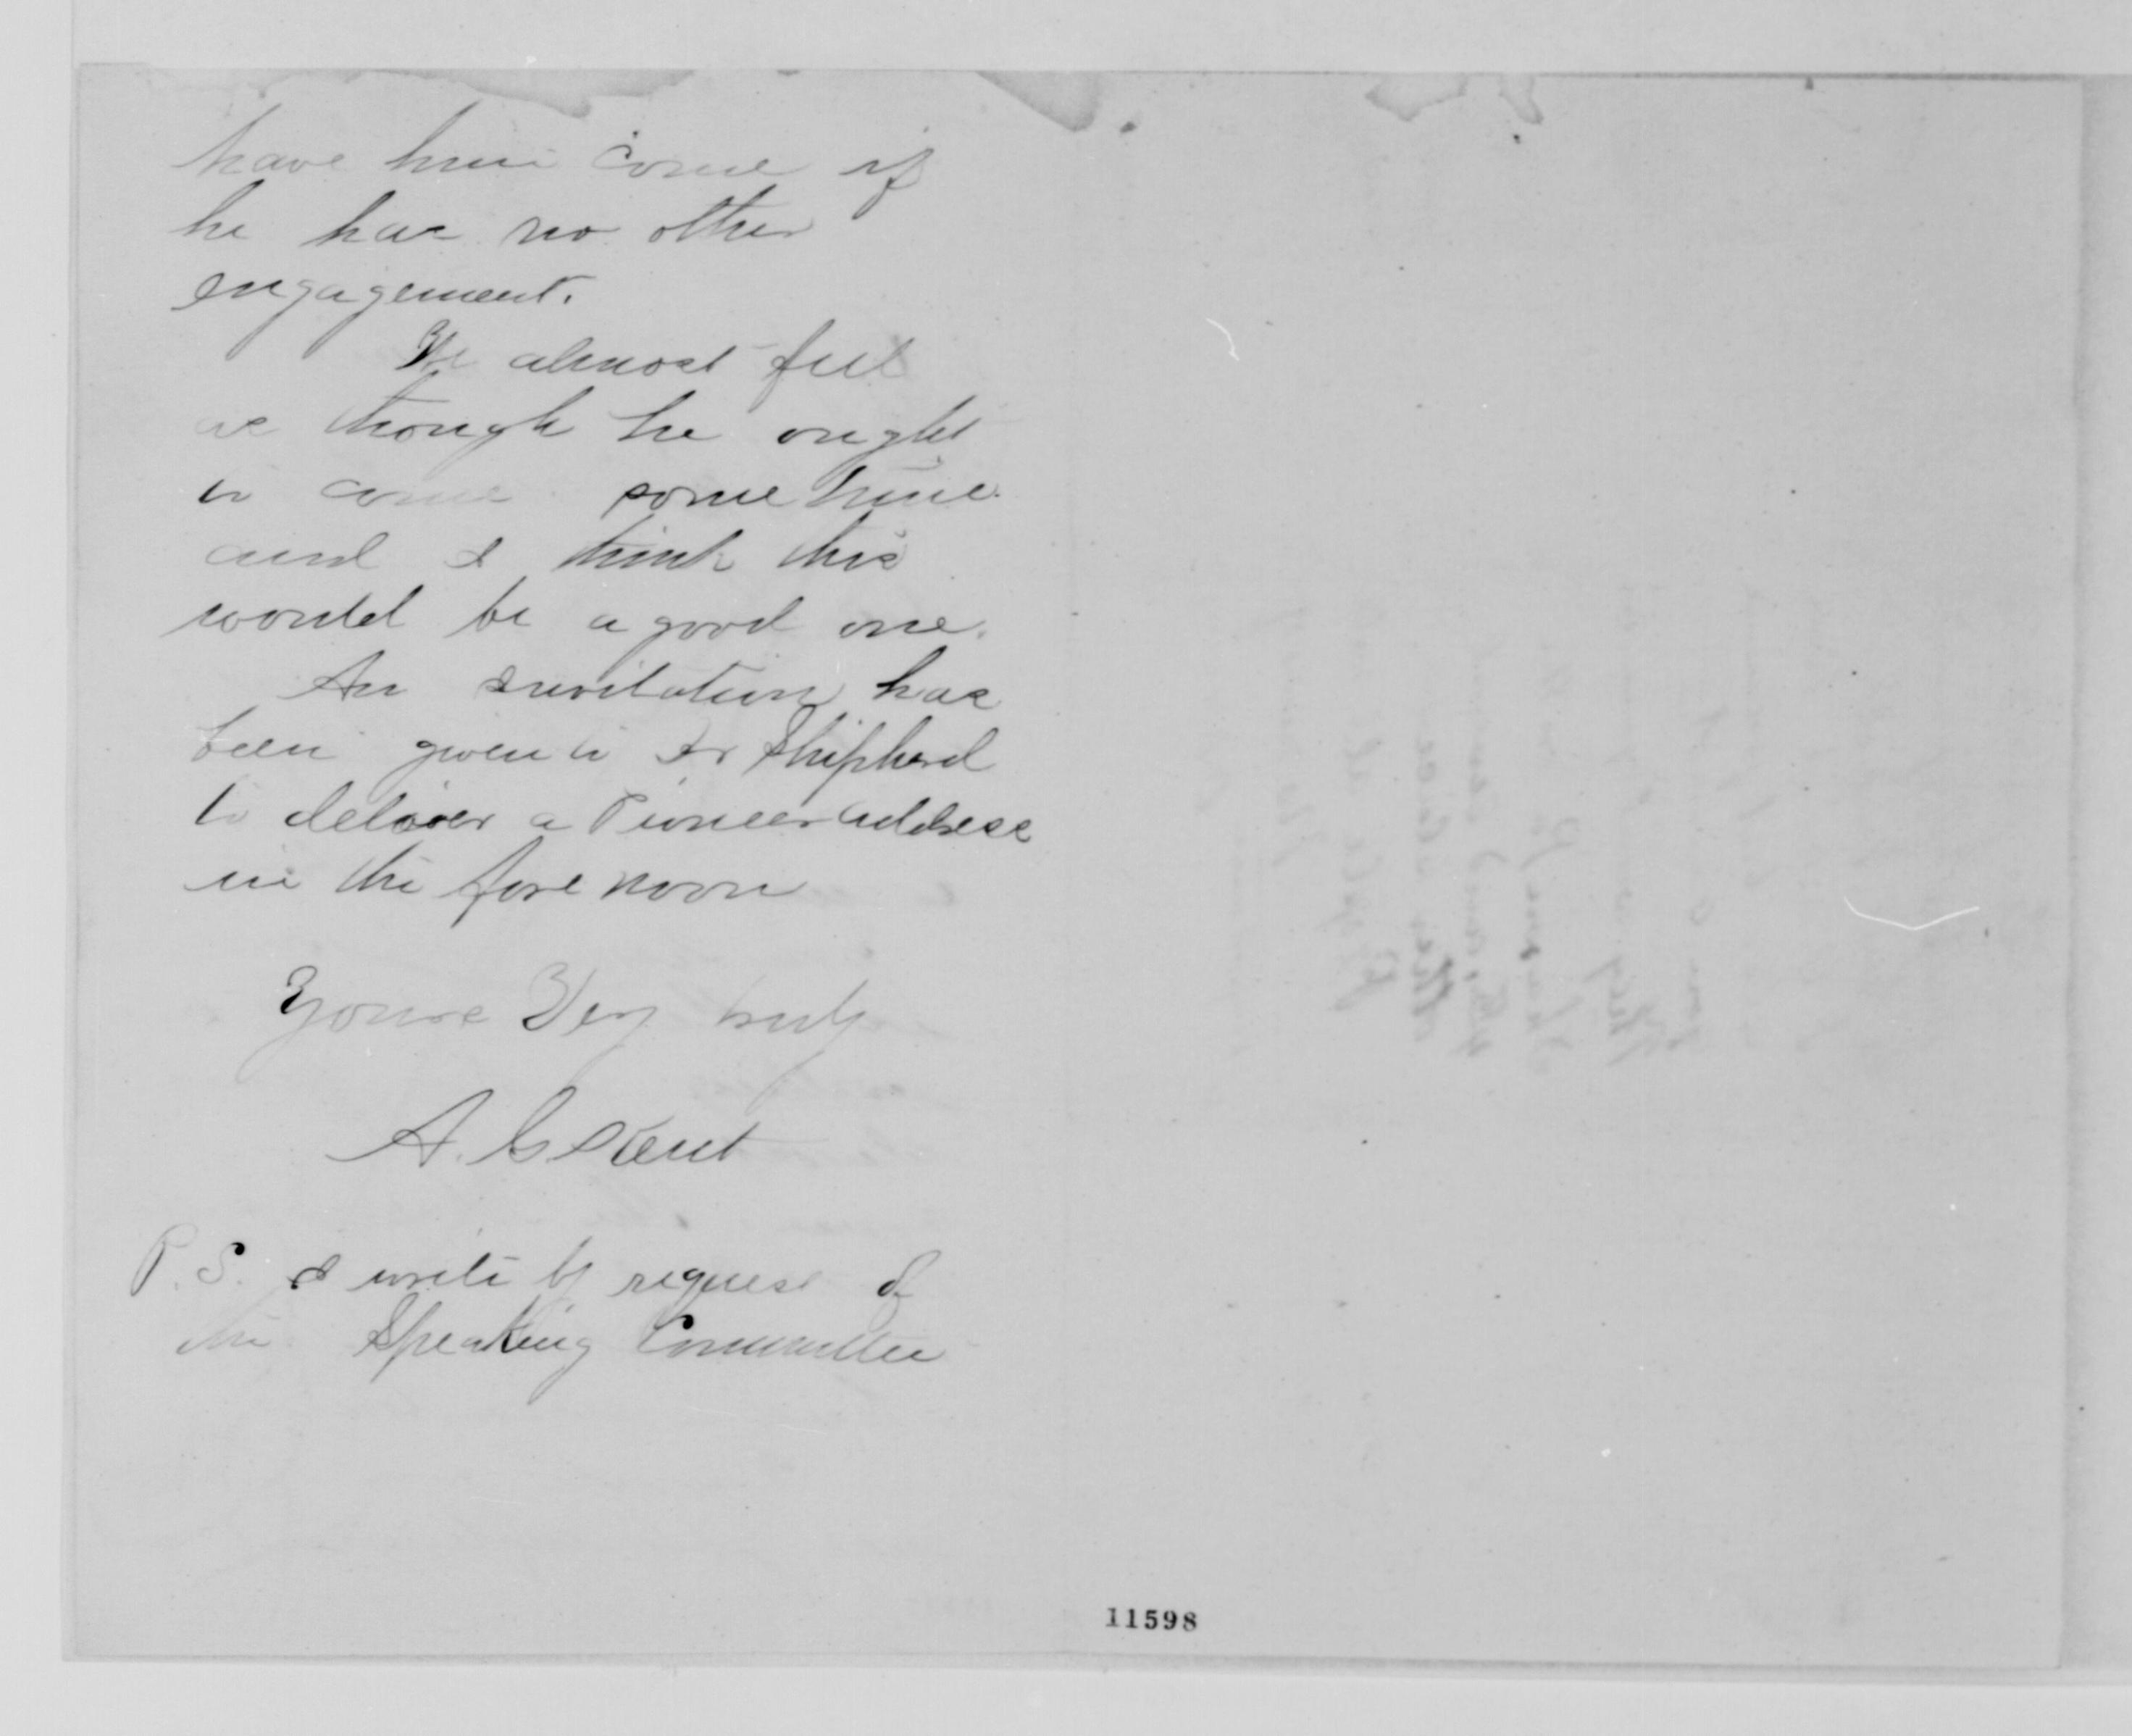 have him come if
he has no other
engagement.
We almost feel
as though he ought
to come sometime
and I think this
would be a good one.
An Invitation has
been given to Dr Shepherd
to deliver a Pioneer address
in the fore noon
Yours Very truly
A. G. Kent
P.S. I write by request of
the Speaking Committee
11598